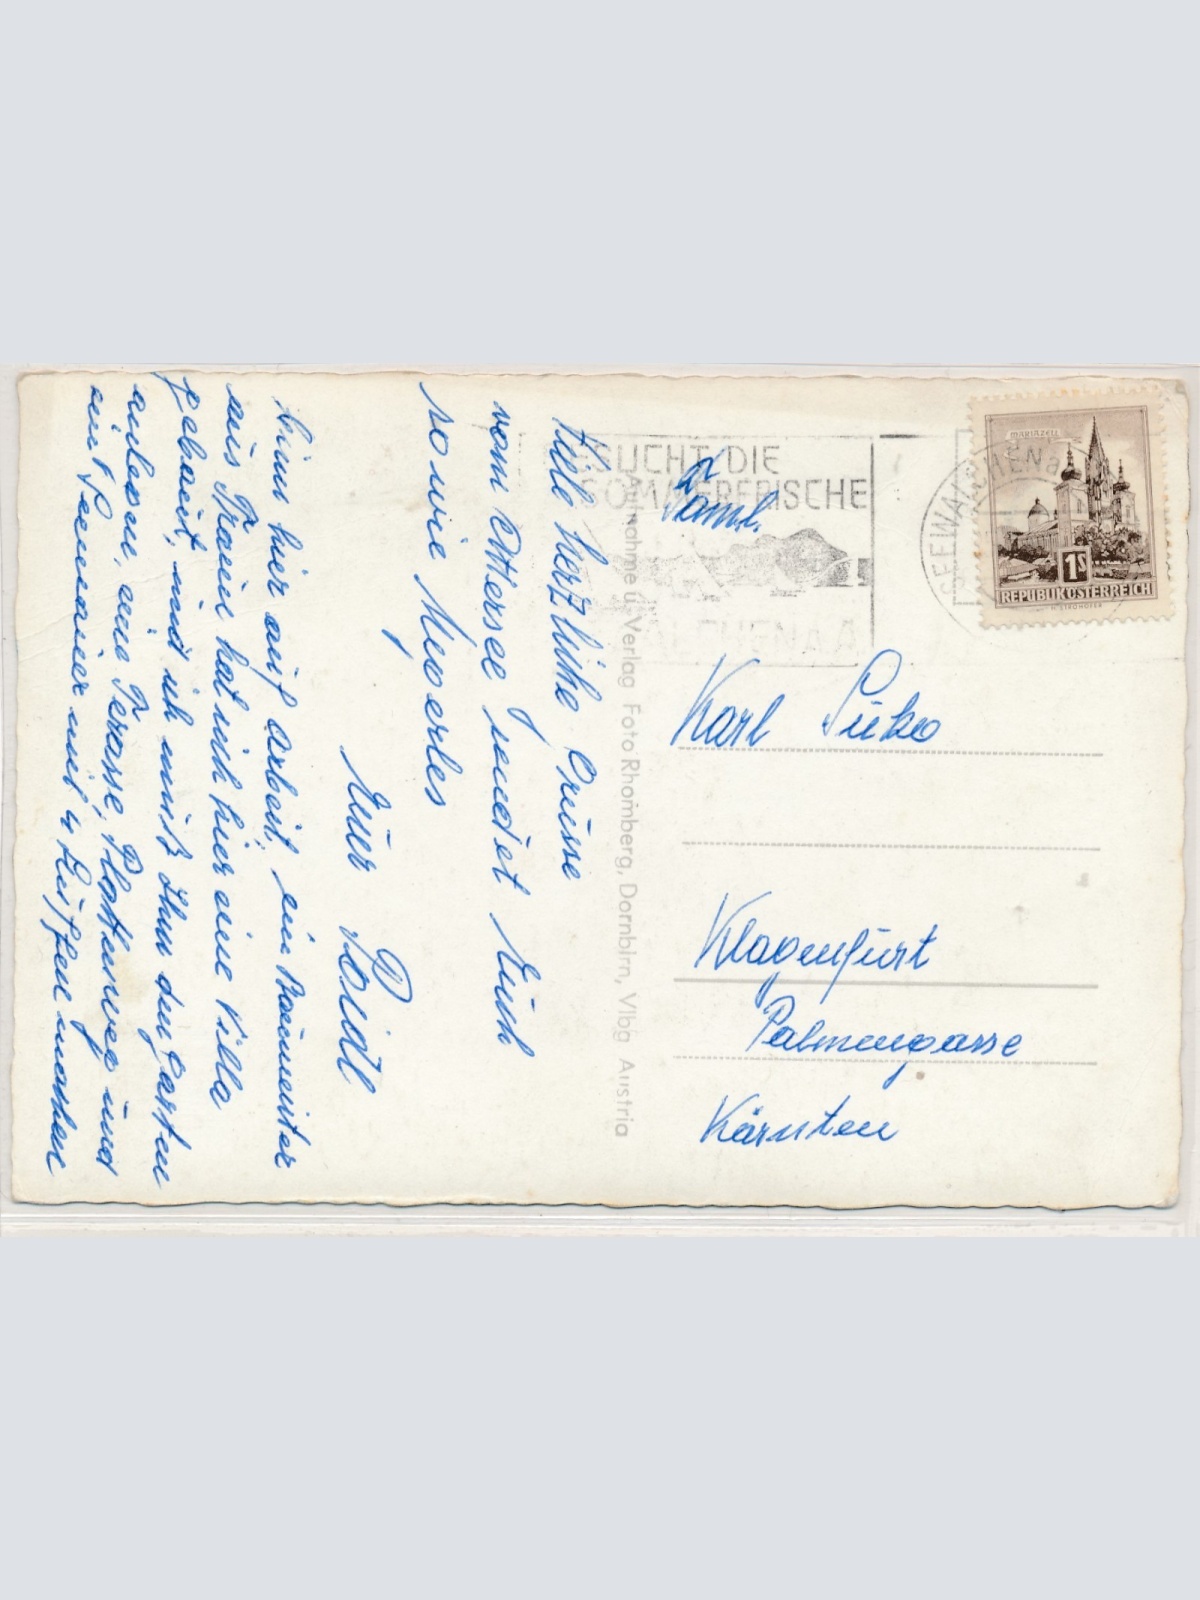 Viele herzliche Grüsse
vom Attersee sendet Euch
sowie
Euer Poidl
bin hier auf Arbeit, ein Baumeister
aus Traun hat sich hier eine Villa
gebaut, und ich muß Ihm den Garten
anlegen, eine Terasse, Plattenwege und
mit
SUCHT DIE
SOMMERFRISCHE
SEEWALCHEN
MARIAZELL
1S
REPUBLIK ÖSTERREICH
Aufnahme u. Verlag Foto Rhomberg, Dornbirn, Vlbg Austria
Faml.
Karl
Klagenfurt
Palmengasse
Kärnten